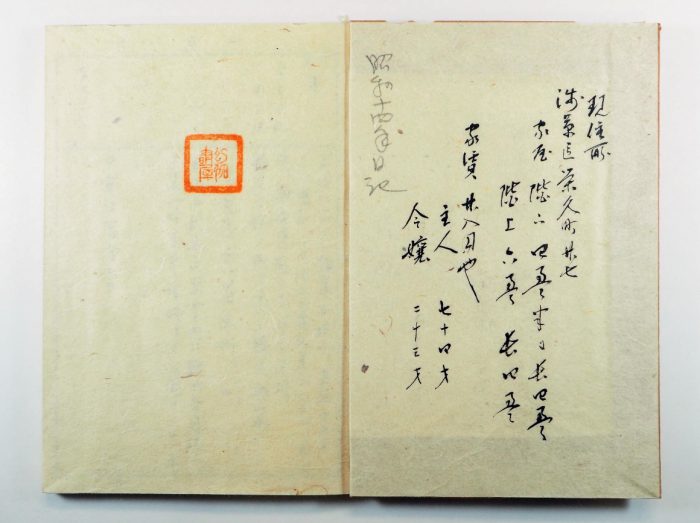 現住所
浅草区栄久町廿七
家屋 階下 四畳半ト長四畳
階上 六畳 長四畳
家賃 廿八円也
主人 七十四才
令嬢 二十三才
昭和十四年日記